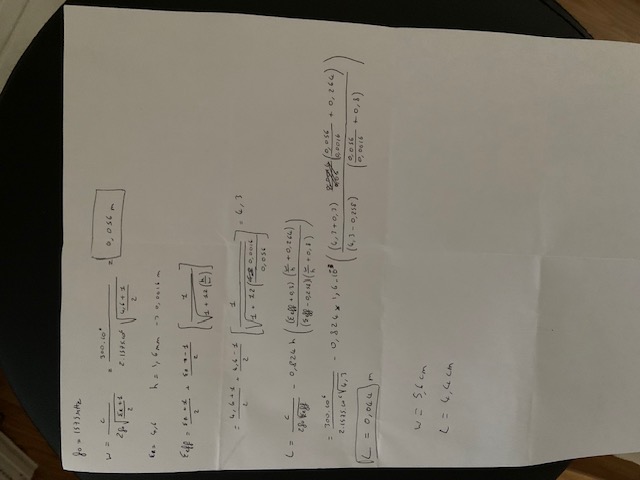 f0 = 1575 MHz
W = c / (2f0 √((εr+1)/2)) = 300.10⁶ / (2.1575.10⁶ √((4,6+1)/2)) = 0,056 m
εr = 4,6 h = 1,6 mm → 0,0016 m
εeff = (εr+1)/2 + (εr-1)/2 [1/√(1+12(h/W))]
= (4,6+1)/2 + (4,6-1)/2 [1/√(1+12(0,0016/0,056))] = 4,3
L = c / (2f0√εeff) - 0,824 h ((εeff+0,3)(W/h+0,264) / (εeff-0,258)(W/h+0,8))
= 300.10⁶ / (2.1575.10⁶√4,3) - 0,824 * 1,6.10⁻³ ((4,3+0,3)(0,056/0,0016+0,264) / (4,3-0,258)(0,056/0,0016+0,8))
L = 0,044 m
W = 5,6 cm
L = 4,4 cm